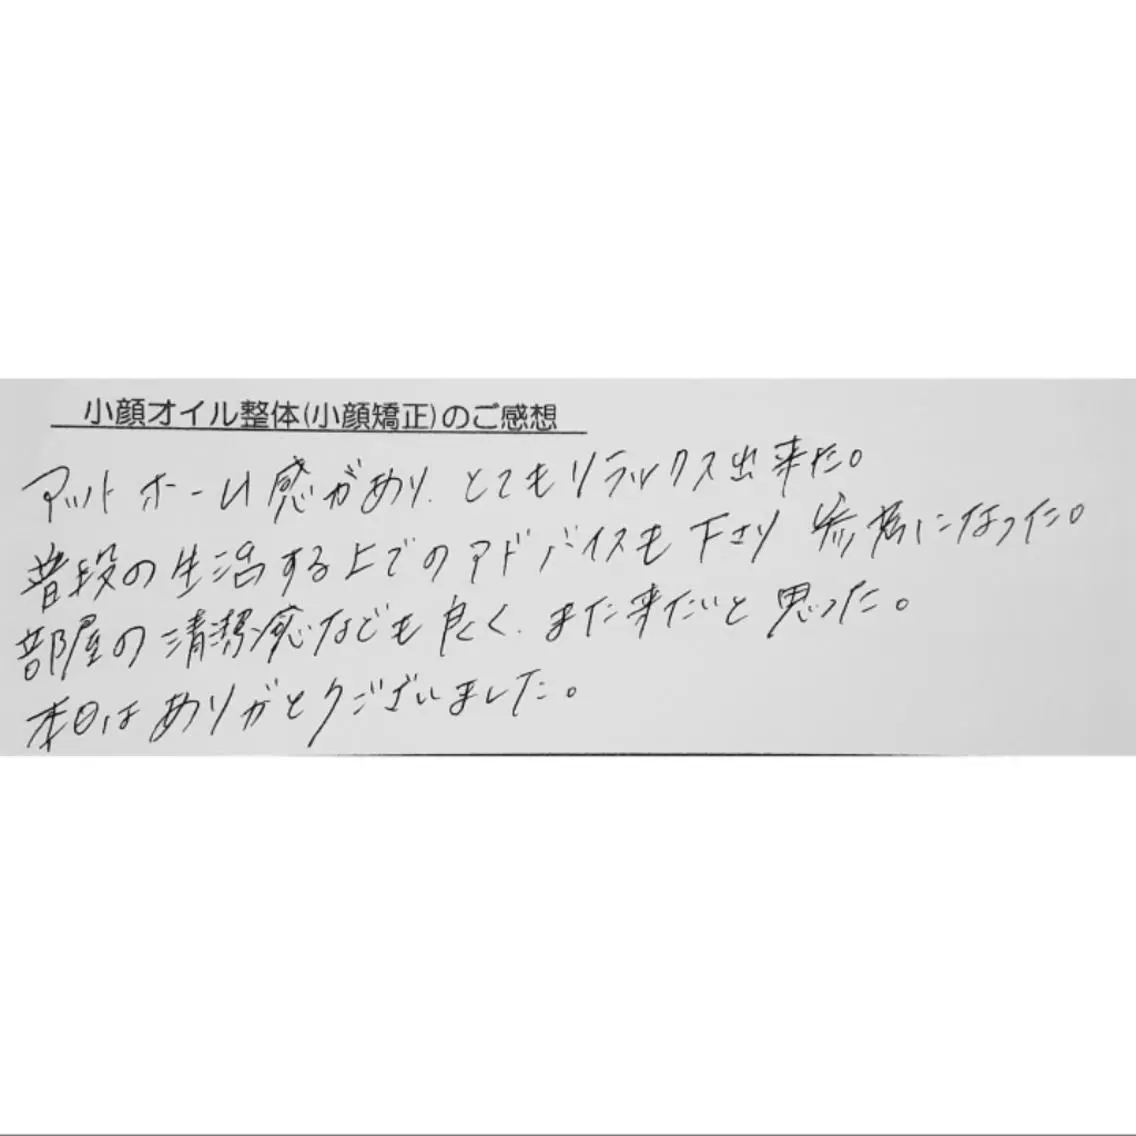 小顔オイル整体(小顔矯正)のご感想
アットホーム感があり、とてもリラックス出来た。
普段の生活する上でのアドバイスも下さり 参考になった。
部屋の清潔感なども良く、また来たいと思った。
本日はありがとうございました。